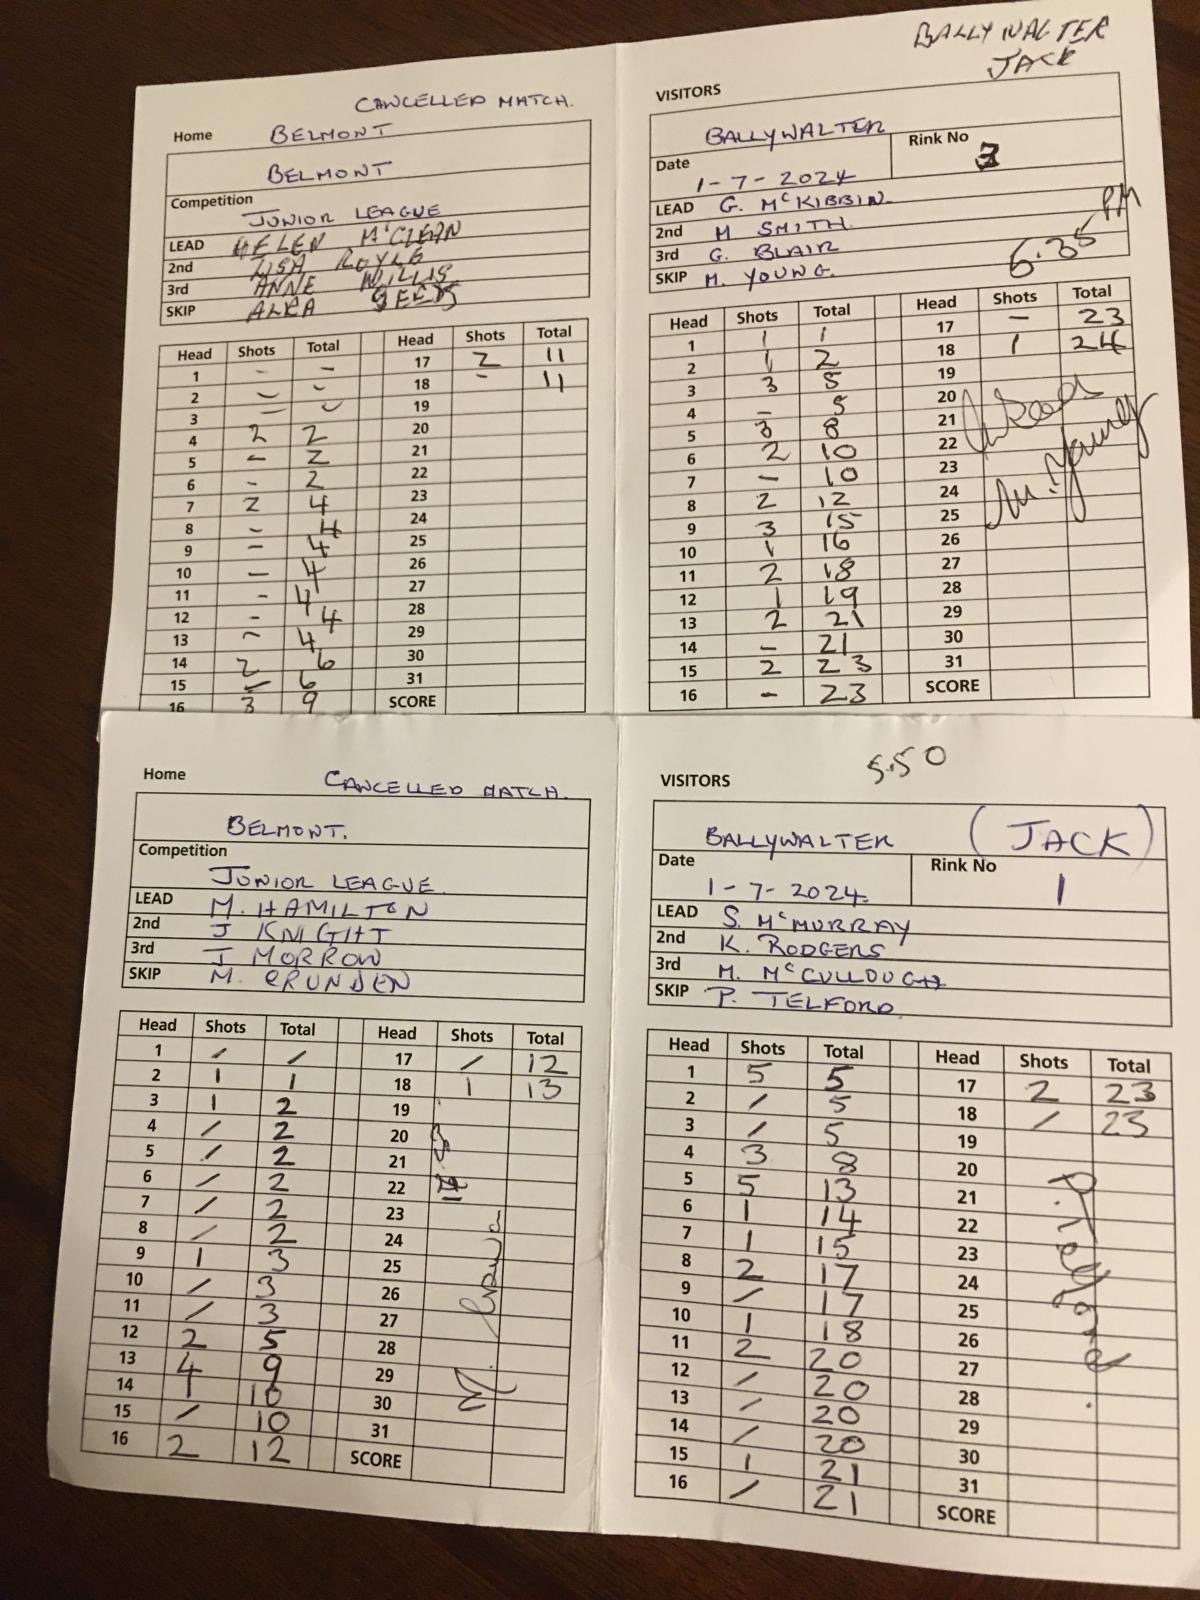 CANCELLED MATCH.
Home BELMONT
BELMONT
Competition
JUNIOR LEAGUE
LEAD HELEN McCLEAN
2nd LISA ROYLE
3rd ANNE WILLIS
SKIP ALKA SEEDS
Head Shots Total Head Shots Total
1 - - 17 2 11
2 - - 18 - 11
3 - - 19
4 2 2 20
5 - 2 21
6 - 2 22
7 2 4 23
8 - 4 24
9 - 4 25
10 - 4 26
11 - 4 27
12 - 4 28
13 - 4 29
14 2 6 30
15 - 6 31
16 3 9 SCORE
BALLYWALTER
JACK
VISITORS
BALLYWALTER
Date Rink No
1-7-2024
LEAD G. McKIBBIN
2nd M SMITH.
3rd G. BLAIR
SKIP M. YOUNG.
6.35 PM
Head Shots Total Head Shots Total
1 1 1 17 - 23
2 1 2 18 1 24
3 3 5 19
4 - 5 20
5 3 8 21
6 2 10 22
7 - 10 23
8 2 12 24
9 3 15 25
10 1 16 26
11 2 18 27
12 1 19 28
13 2 21 29
14 - 21 30
15 2 23 31
16 - 23 SCORE
M. Young
Home CANCELLED MATCH.
BELMONT.
Competition
JUNIOR LEAGUE.
LEAD M. HAMILTON
2nd J KNIGHT
3rd J MORROW
SKIP M. CRUNDEN
Head Shots Total Head Shots Total
1 / / 17 / 12
2 1 1 18 1 13
3 1 2 19
4 / 2 20
5 / 2 21
6 / 2 22
7 / 2 23
8 / 2 24
9 1 3 25
10 / 3 26
11 / 3 27
12 2 5 28
13 4 9 29
14 1 10 30
15 / 10 31
16 2 12 SCORE
5.50
VISITORS
BALLYWALTER (JACK)
Date Rink No
1-7-2024. 1
LEAD S. McMURRAY
2nd K. RODGERS
3rd M. McCULLOUGH
SKIP P. TELFORD.
Head Shots Total Head Shots Total
1 5 5 17 2 23
2 / 5 18 / 23
3 / 5 19
4 3 8 20
5 5 13 21
6 1 14 22
7 1 15 23
8 2 17 24
9 / 17 25
10 1 18 26
11 2 20 27
12 / 20 28
13 / 20 29
14 / 20 30
15 1 21 31
16 / 21 SCORE
P. Telford